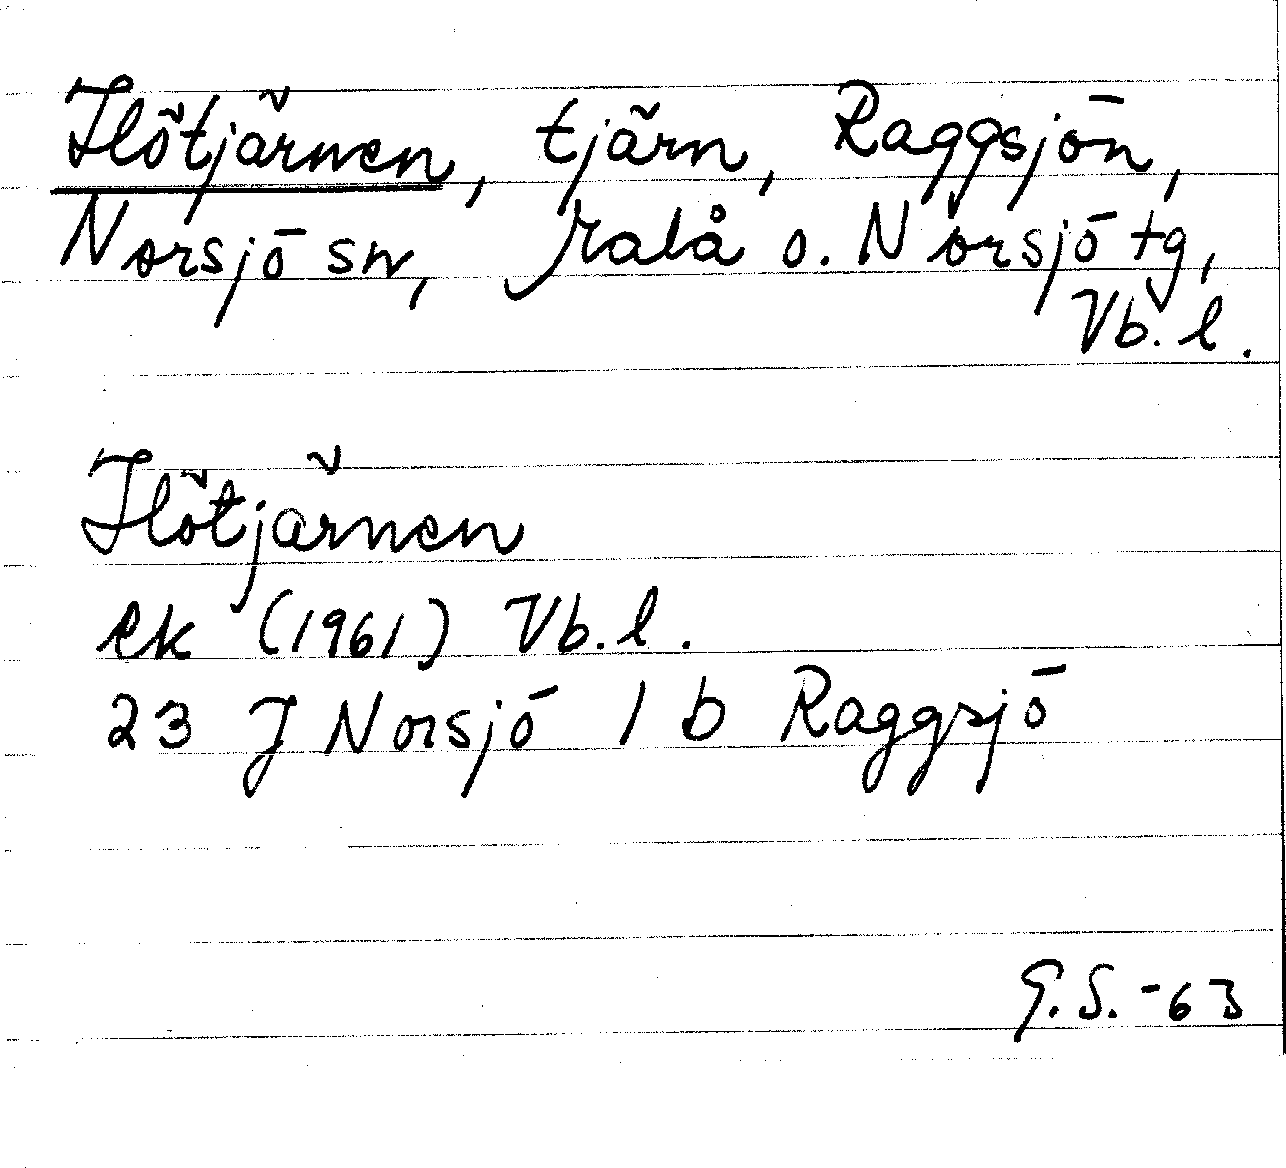 Flötjärnen, tjärn, Raggsjön,
Norsjö sn, Malå o. Norsjö tg,
Vb. l.
Flötjärnen
ek (1961) Vb. l.
23 J Norsjö 1 b Raggsjö
G.S.-63